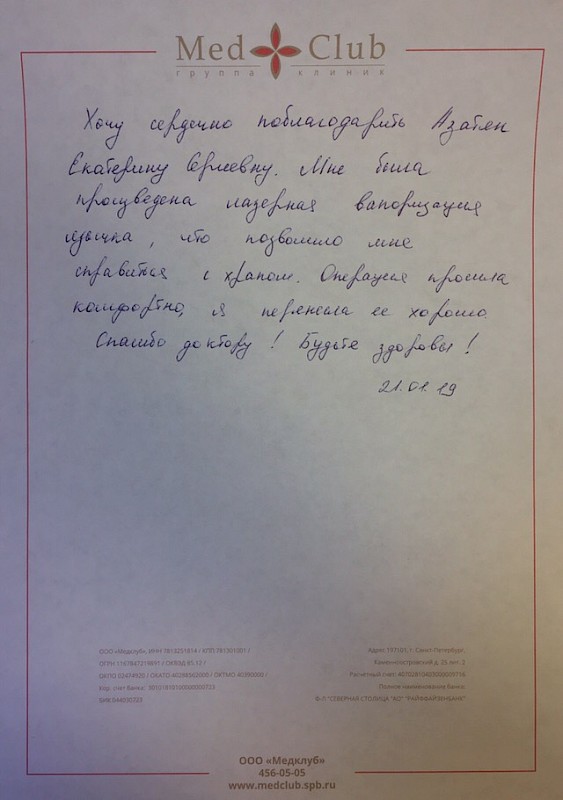 Med Club
группа клиник
Хочу сердечно поблагодарить Азатян
Екатерину Сергеевну. Мне была
произведена лазерная вапоризация
язычка, что позволило мне
справиться с храпом. Операция прошла
комфортно, я перенесла ее хорошо.
Спасибо доктору! Будьте здоровы!
21.01.19
ООО «Медклуб», ИНН 7813251814 / КПП 781301001 /
ОГРН 1167847219691 / ОКВЭД 85.12 /
ОКПО 02474920 / ОКАТО 40288562000 / ОКТМО 40390000 /
Кор. счет банка: 30101810100000000723
БИК 044030723
Адрес 197101, г. Санкт-Петербург,
Каменноостровский д. 25, лит. 2
Расчетный счет: 40702810403000009716
Полное наименование банка:
Ф-Л "СЕВЕРНАЯ СТОЛИЦА "АО" "РАЙФФАЙЗЕНБАНК"
ООО «Медклуб»
456-05-05
www.medclub.spb.ru